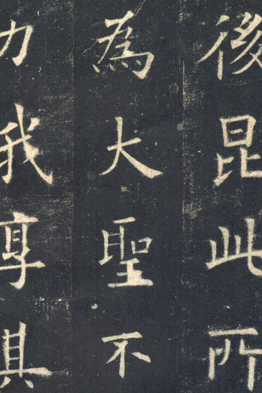 後昆此所
為大聖不
力我享其